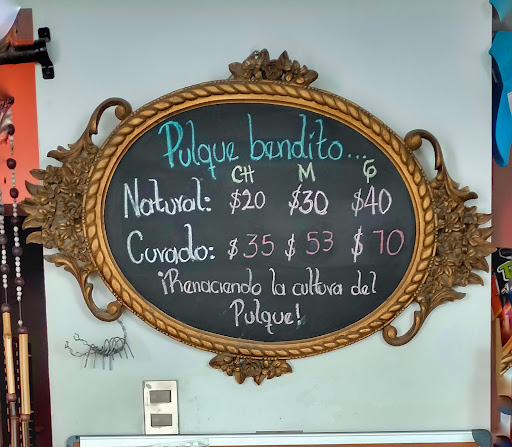 Pulque bendito...
CH M G
Natural: $20 $30 $40
Curado: $35 $53 $70
¡Renaciendo la cultura del
Pulque!